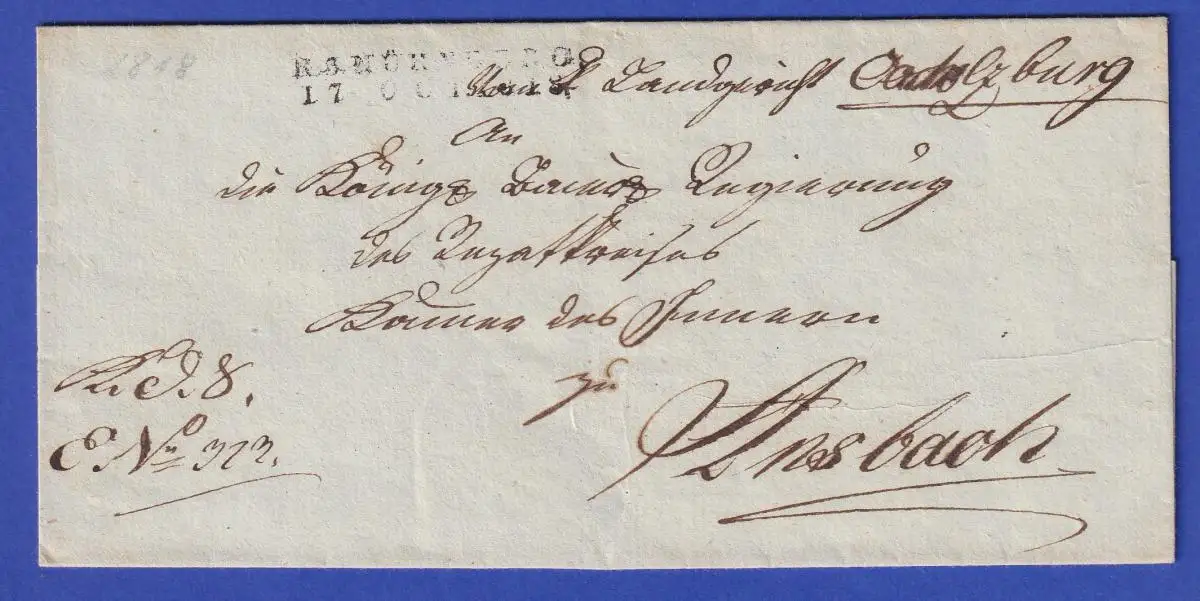 1818
R.3.NÜRNBERG
17 OCT. 1818
Vom K. Landgericht Cadolzburg
An
die Königl Baier Regierung
des Rezatkreises
Kammer des Innern
zu
Ansbach
K. D. S.
E No 323.